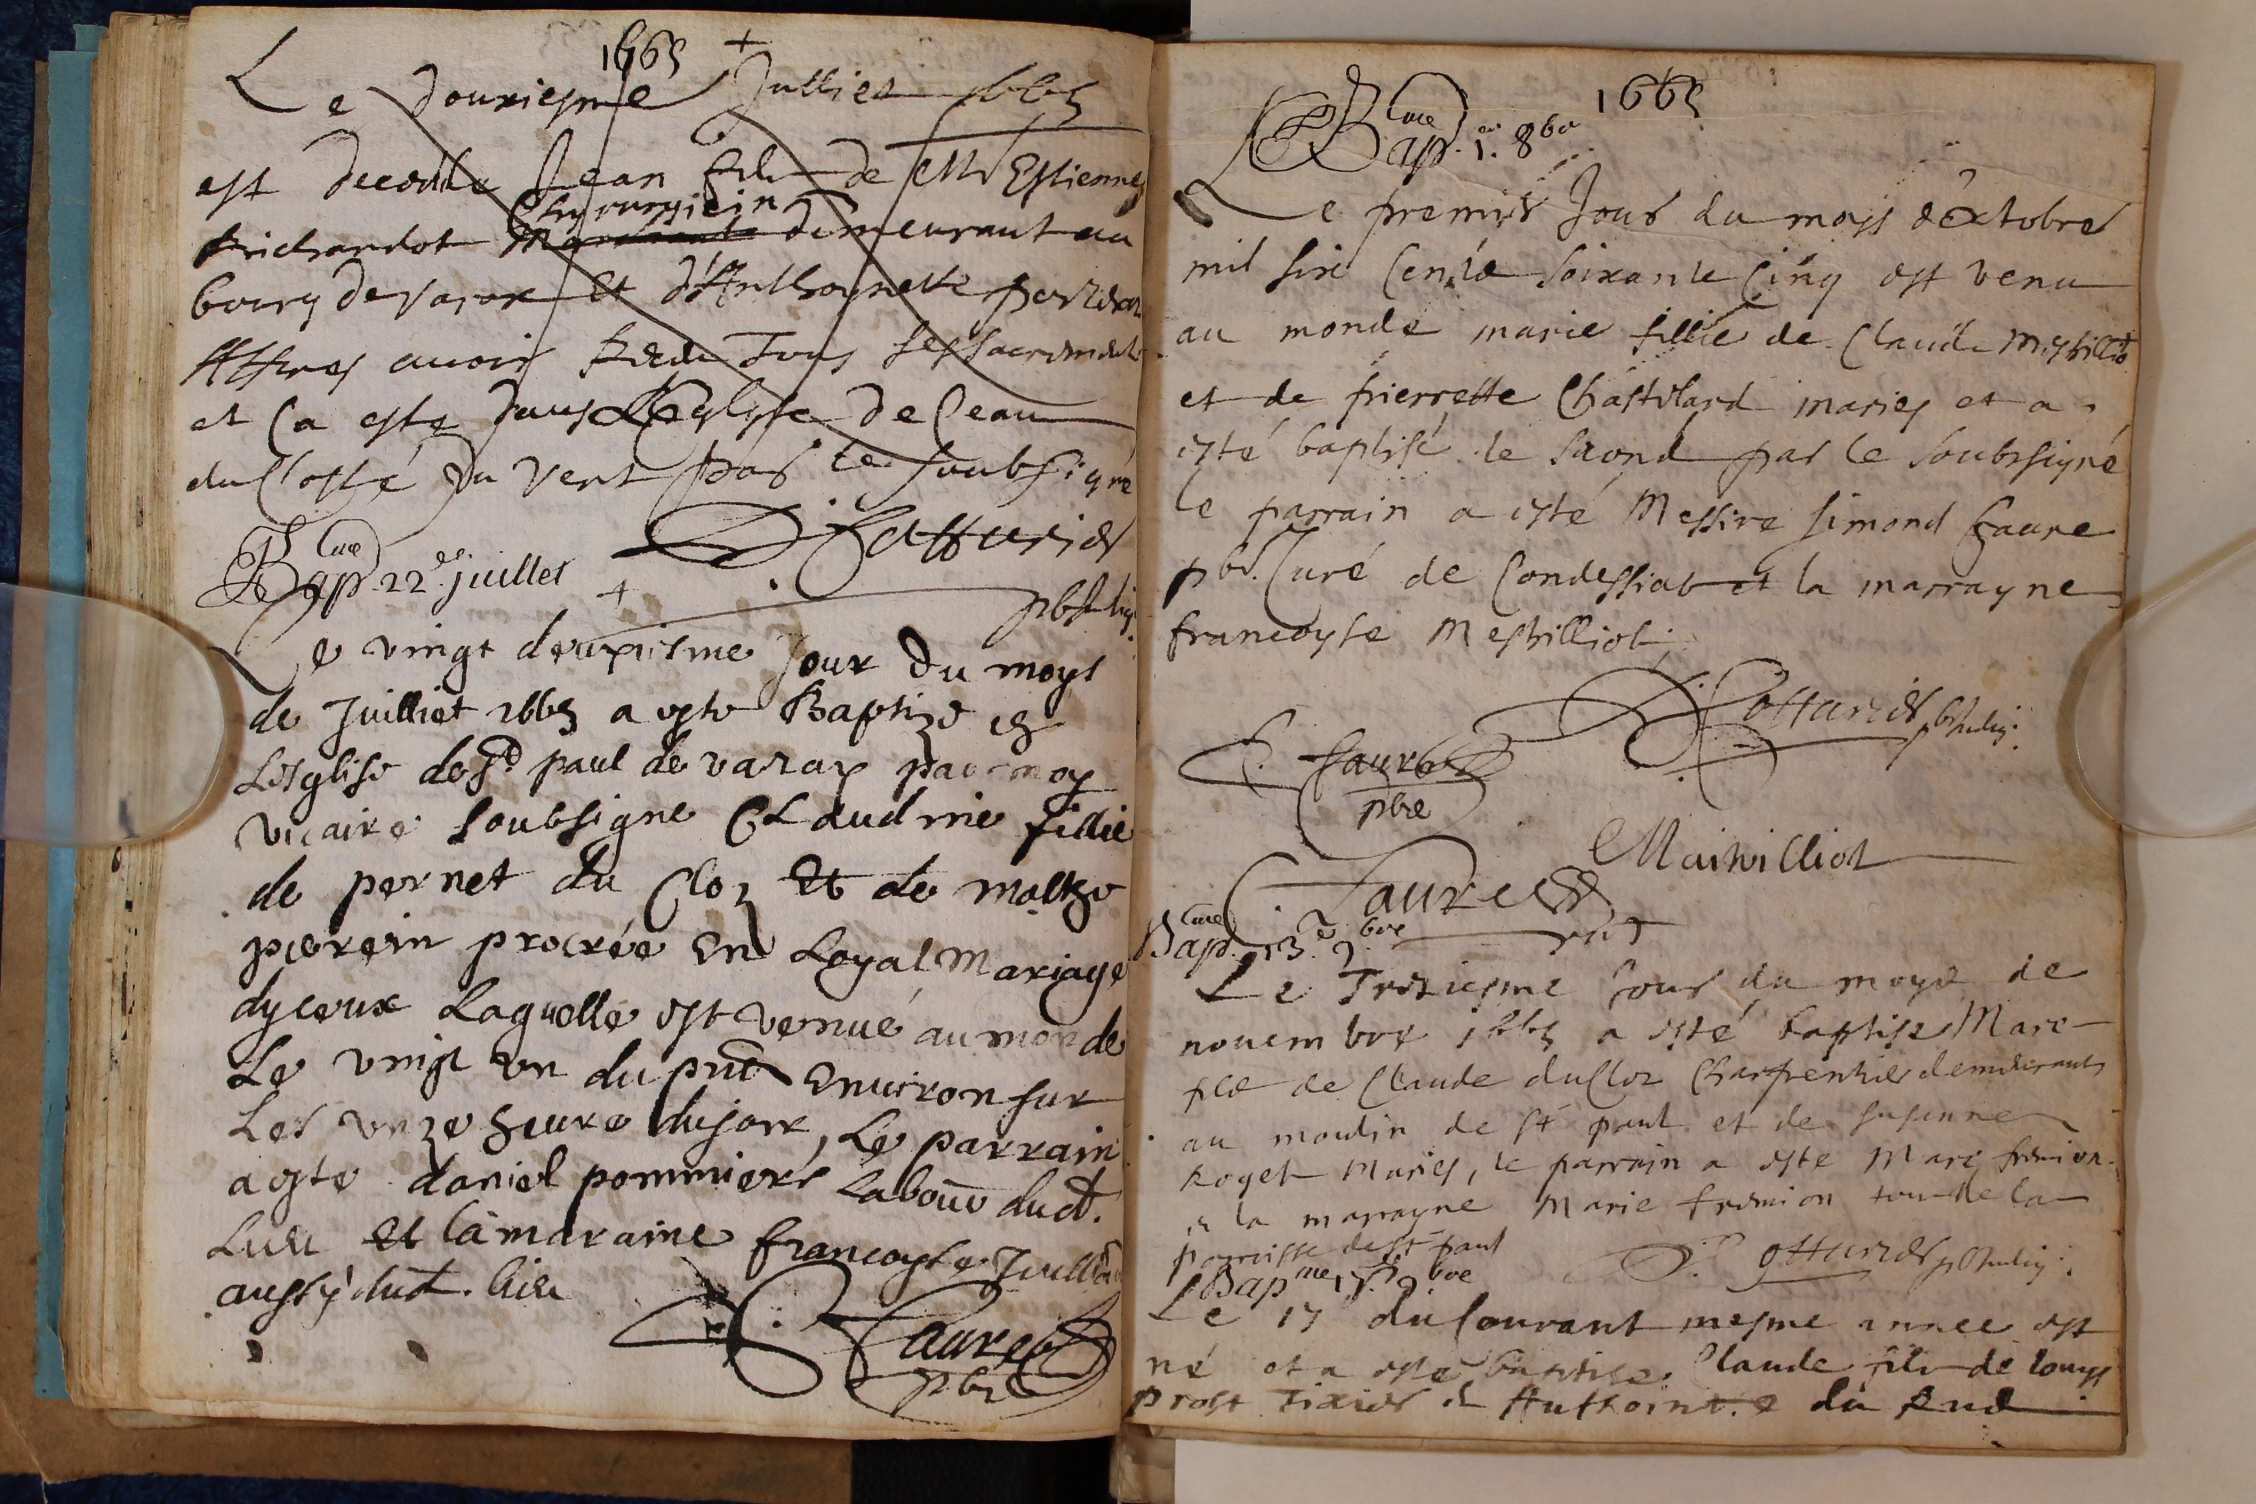 1665
Le douxiesme Julliet 1665
est decedde Jean fils de Mr Estienne
Richardot Chyrurgiein demeurant au
bourg de varax et d'Anthoynette
Appres avoir Receu Tous ses sacrements
et a esté dans L'Esglise de Ceau
du Costé du Vent par le soubsigné
Cottarier
pbr
Bapme 22e juillet
Le vingt deuxiesme Jour du moys
de Juilliet 1665 a este Baptize en
Lesglise de St paul de varax par moy
vicaire soubsigne CLaudine fillie
de pernet du Cloz Et de
pierein procrée En Loyal Mariage
dyceux Laquelle est venue au monde
Le vingt un du pnt Environ sur
Les unze heure du jour, Le parrain
a este daniel pommiers Labour dud.
Lieu Et la maraine francoyse
aussy dud. lieu
Faure
pbr
1665
Bapme 1er 8bre
Le premier Jour du moys d'Octobre
mil six Cents soixante Cinq est venu
au monde marie fillie de Claude Meshilliot
et de pierrette Chastelard maries et a
esté baptisé le second par le soubssigné
le parrain a esté Messire simond faure
pbr. Curé de Condessiat et la marrayne
francoyse Meshilliot
Cottarier pbr
Faure
pbre
Maihilliot
Faure
Bapme 13e 9bre
Le Tresiesme Jour du moys de
novembre 1665 a esté baptise Marc
fils de Claude du Cloz Charpentier demeurants
au moulin de st paul et de susanne
Roget Maries, le parrain a este Marc fremion
et la marrayne Marie fremion tous de la
paroisse de st paul
Cottarier pbr
Bapme 17e 9bre
Le 17 du Courant mesme annee est
né et a esté baptise Claude fils de louys
prost Tixier et Anthoinette du Rud